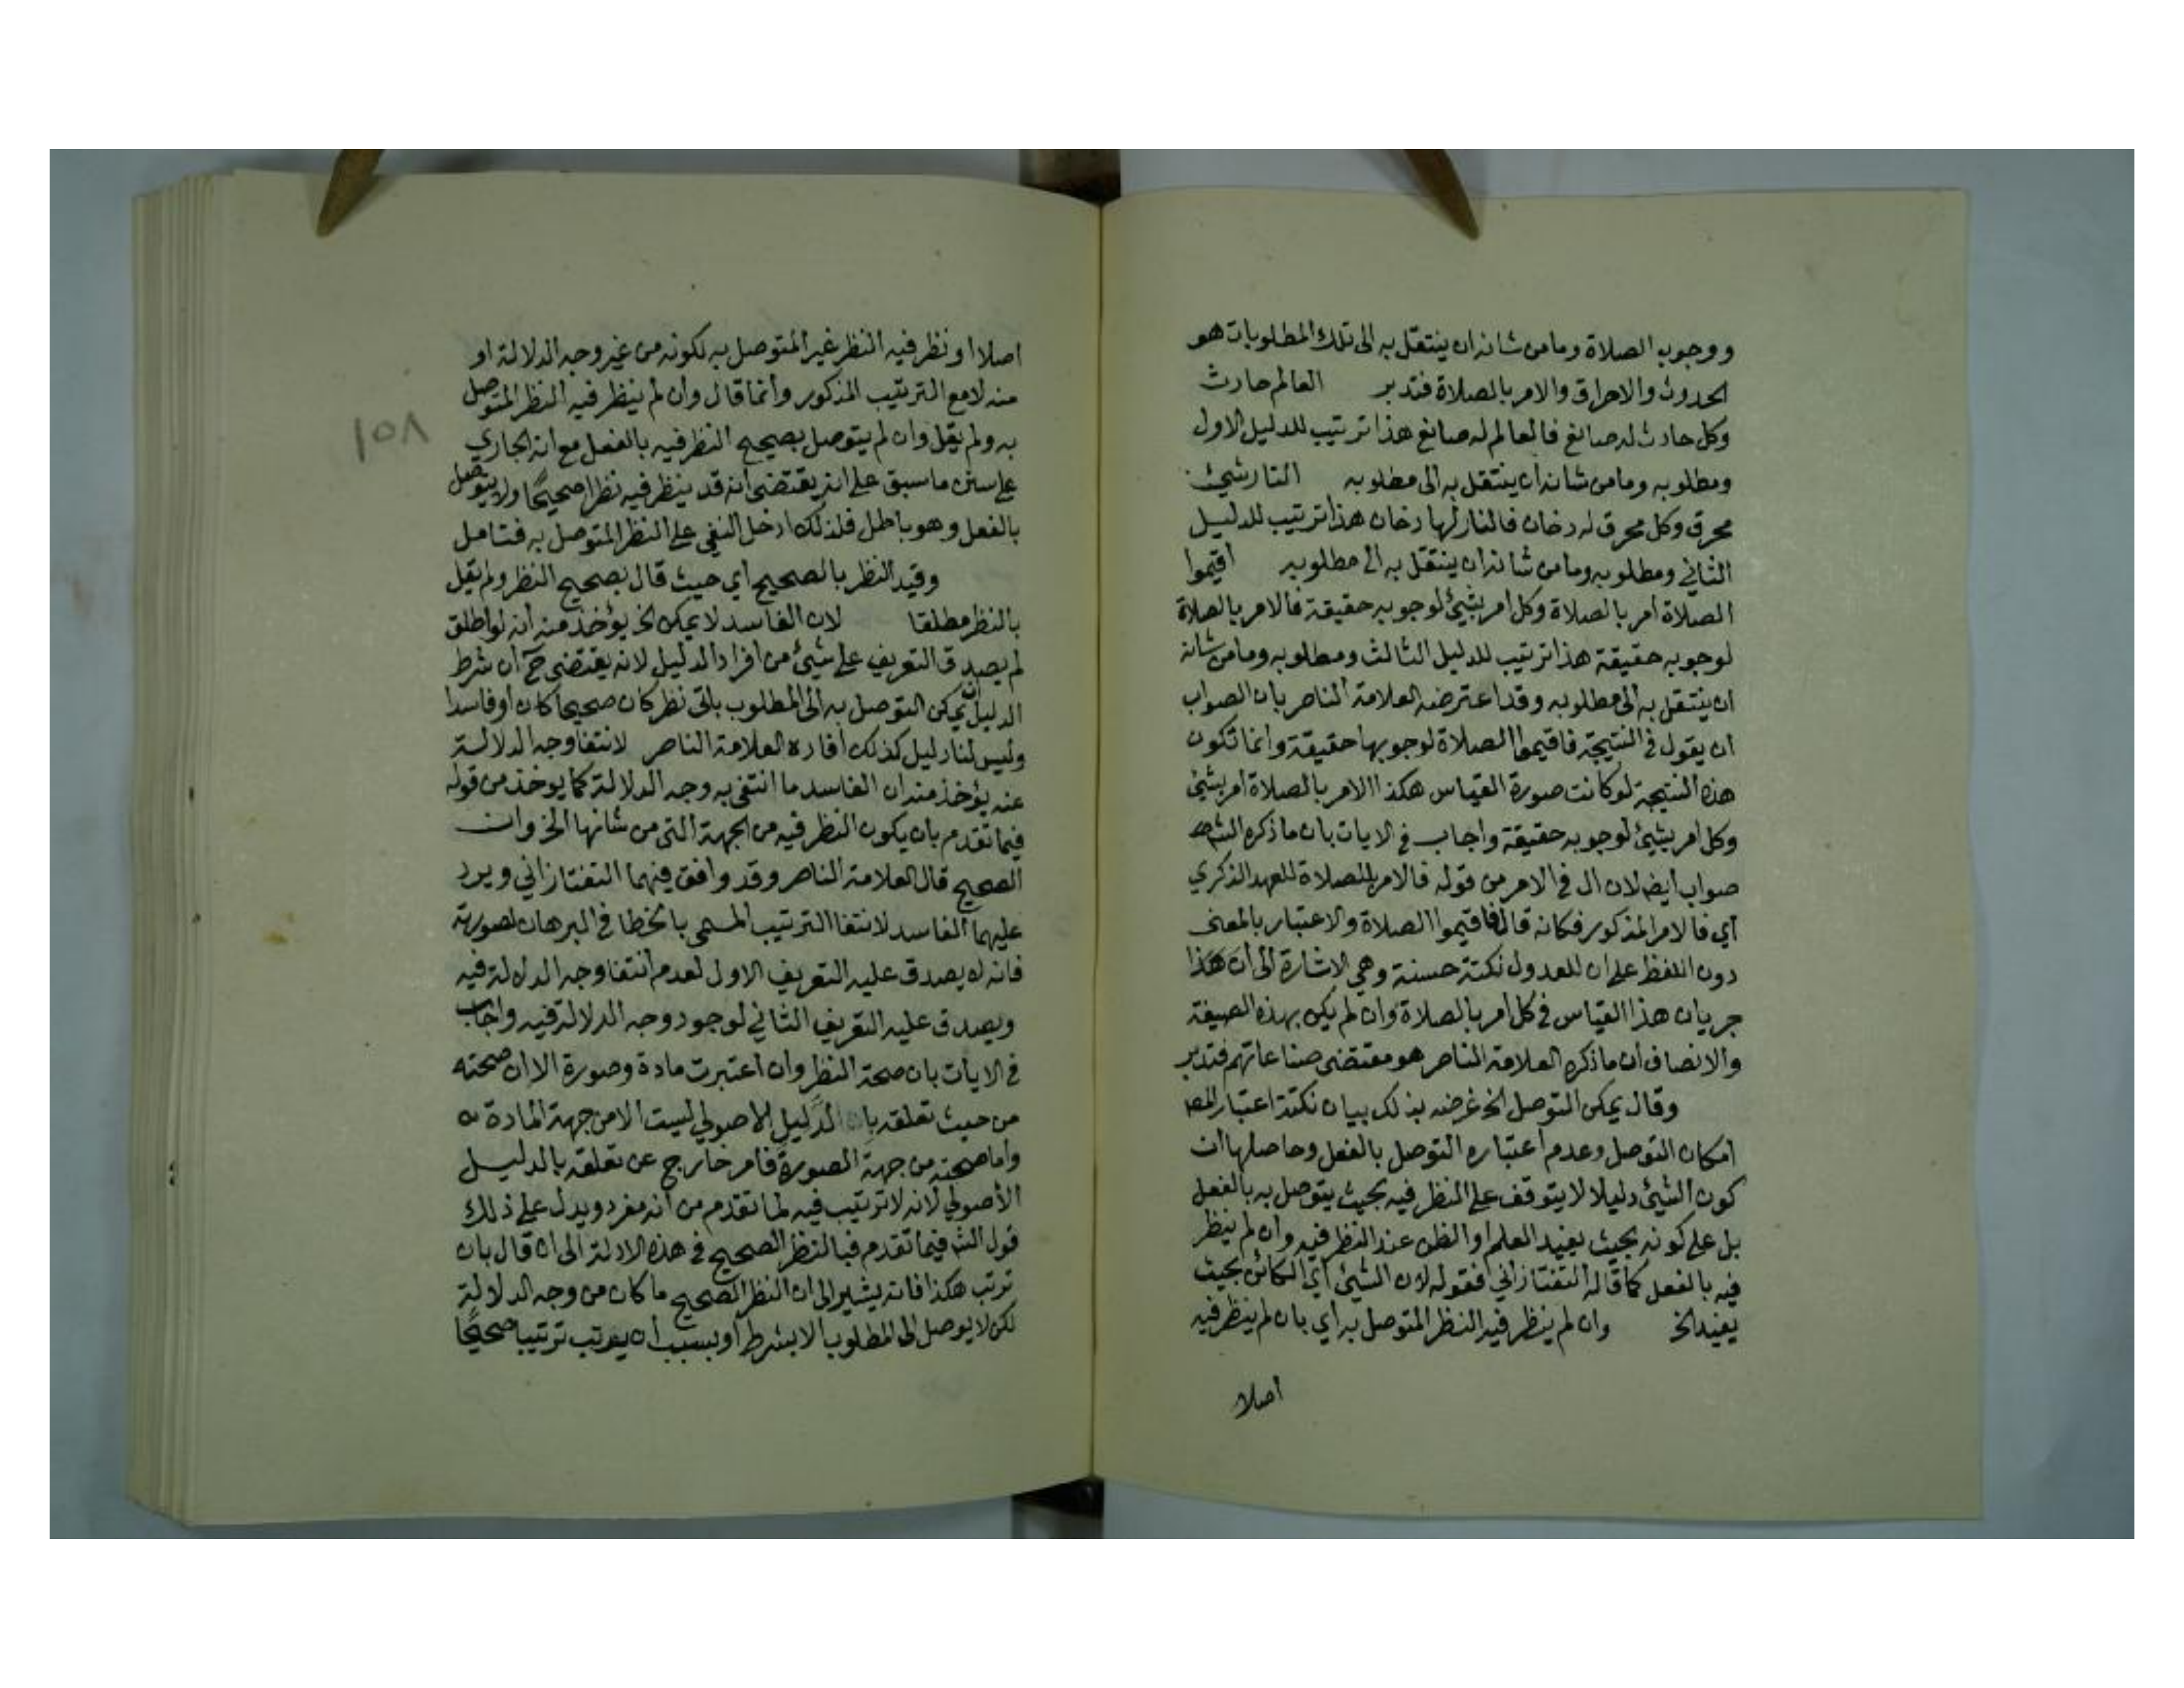 ووجوب الصلاة وما من شانه ان ينتقل به الى تلك المطلوبات هو
الحدوث والاحراق والامر بالصلاة فتدبر العالم حادث
وكل حادث له صانع فالعالم له صانع هذا ترتيب للدليل الاول
ومطلوبه وما من شانه ان ينتقل به الى مطلوبه النار شيئ
محرق وكل محرق له دخان فالنار لها دخان هذا ترتيب للدليل
الثاني ومطلوبه وما من شانه ان ينتقل به الى مطلوبه اقيموا
الصلاة امر بالصلاة وكل امر بشيئ لوجوبه حقيقة فالامر بالصلاة
لوجوبه حقيقة هذا ترتيب للدليل الثالث ومطلوبه وما من شانه
ان ينتقل به الى مطلوبه وقد اعترضه العلامة الناصر بان الصواب
ان يقول في النتيجة فاقيموا الصلاة لوجوبها حقيقة وانما تكون
هذه النتيجة لو كانت صورة القياس هكذا الامر بالصلاة امر بشيئ
وكل امر بشيئ لوجوبه حقيقة واجاب في الايات بان ما ذكره الشه
صواب ايضا لان ال في الامر من قوله فالامر بالصلاة للعهد الذكري
اي فالامر المذكور فكانه قال فاقيموا الصلاة والاعتبار بالمعنى
دون اللفظ على ان للعدول نكتة حسنة وهي الاشارة الى ان هكذا
جريان هذا القياس في كل امر بالصلاة وان لم يكن بهذه الصيغة
والانصاف ان ما ذكره العلامة الناصر هو مقتضى صناعاتهم فتدبر
وقال يمكن التوصل الخ غرضه بذلك بيان نكتة اعتبار المص
امكان التوصل وعدم اعتباره التوصل بالفعل وحاصلها ان
كون الشيئ دليلا لا يتوقف على النظر فيه بحيث يتوصل به بالفعل
بل على كونه بحيث يفيد العلم او الظن عند النظر فيه وان لم ينظر
فيه بالفعل كما قاله التفتازاني فقوله لان الشيئ اي الكائن بحيث
يفيد الخ وان لم ينظر فيه النظر المتوصل به اي بان لم ينظر فيه
اصلا
اصلا او نظر فيه النظر غير المتوصل به لكونه من غير وجه الدلالة او
منه لا مع الترتيب المذكور وانما قال وان لم ينظر فيه النظر المتوصل
به ولم يقل وان لم يتوصل بصحيح النظر فيه بالفعل مع انه الجاري
على سنن ما سبق على انه يقتضي انه قد ينظر فيه نظرا صحيحا ولا يتوصل
بالفعل وهو باطل فلذلك ادخل النفي على النظر المتوصل به فتامل
وقيد النظر بالصحيح اي حيث قال بصحيح النظر ولم يقل
بالنظر مطلقا لان الفاسد لا يمكن الخ يؤخذ منه انه لو اطلق
لم يصدق التعريف على شيئ من افراد الدليل لانه يقتضي ح ان شرط
الدليل ان يمكن التوصل به الى المطلوب باي نظر كان صحيحا كان او فاسدا
وليس لنا دليل كذلك افاده العلامة الناصر لانتفا وجه الدلالة
عنه يؤخذ منه ان الفاسد ما انتفى به وجه الدلالة كما يوخذ من قوله
فيما تقدم بان يكون النظر فيه من الجهة التي من شانها الخ وان
الصحيح قال العلامة الناصر وقد وافق فيهما التفتازاني ويرد
عليهما الفاسد لانتفا الترتيب المسمى بالخطا في البرهان لصورته
فانه لا يصدق عليه التعريف الاول لعدم انتفا وجه الدلالة فيه
ويصدق عليه التعريف الثاني لوجود وجه الدلالة فيه واجاب
في الايات بان صحة النظر وان اعتبرت مادة وصورة الا ان صحته
من حيث تعلقه بالدليل الاصولي ليست الا من جهة المادة
واما صحته من جهة الصورة فامر خارج عن تعلقه بالدليل
الاصولي لانه لا ترتيب فيه لما تقدم من انه مفرد ويدل على ذلك
قول الشه فيما تقدم فبالنظر الصحيح في هذه الادلة الى ان قال بان
ترتب هكذا فانه يشير الى ان النظر الصحيح ما كان من وجه الدلالة
لكن لا يوصل الى المطلوب الا بشرط او بسبب ان يرتب ترتيبا صحيحا
١٥٨